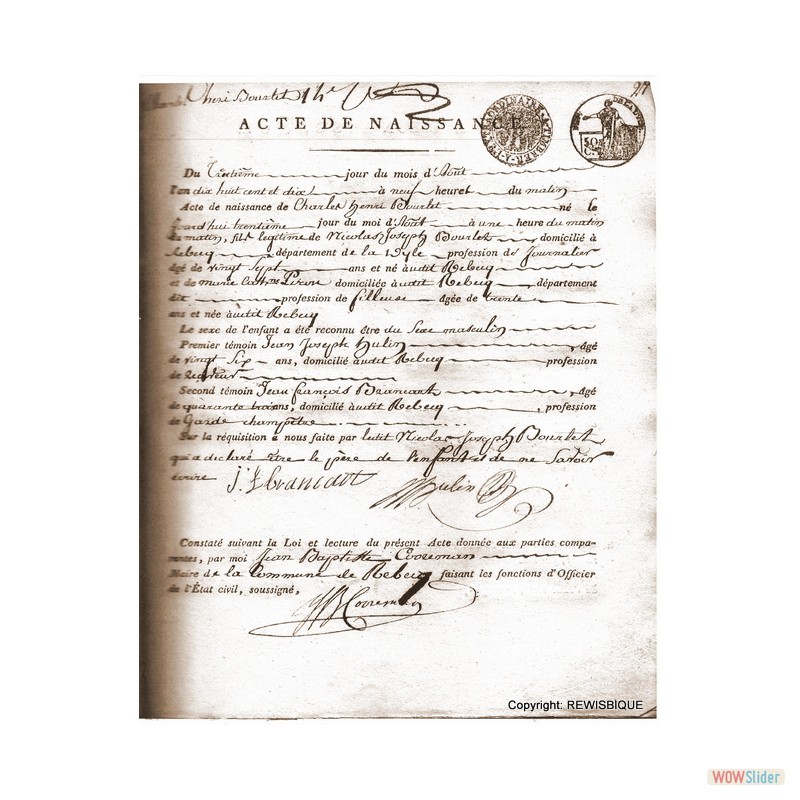 Bourlet
ACTE DE NAISSANCE
Du Trentième jour du mois d'Août
l'an dix huit cent et dix à neuf heures du matin
Acte de naissance de Charles henri Bourlet né le
jourd'hui trentième jour du moi d'Août à une heure du matin
du matin, fils legitime de Nicolas Joseph Bourlet domicilié à
Rebecq département de la Dyle profession de Journalier
âgé de vingt Sept ans et né àudit Rebecq
et de marie domiciliée àudit Rebecq, département
dit profession de filleuse âgée de trente
ans et née àudit Rebecq
Le sexe de l'enfant a été reconnu être du Sexe masculin
Premier témoin Jean Joseph hulin, âgé
de vingt Six ans, domicilié audit Rebecq profession
de
Second témoin Jean françois Brancart, âgé
de quarante trois ans, domicilié àudit Rebecq, profession
de Garde champêtre
Sur la réquisition à nous faite par ledit Nicolas Joseph Bourlet
qui a declaré être le père de l'enfant et de ne Savoir
écrire J. F. Brancart Hulin
Constaté suivant la Loi et lecture du présent Acte donnée aux parties compa-
rentes, par moi Jean Baptiste Cooreman
Maire de la Commune de Rebecq faisant les fonctions d'Officier
de l'État civil, soussigné,
JB Cooreman
Copyright: REWISBIQUE
WOWSlider